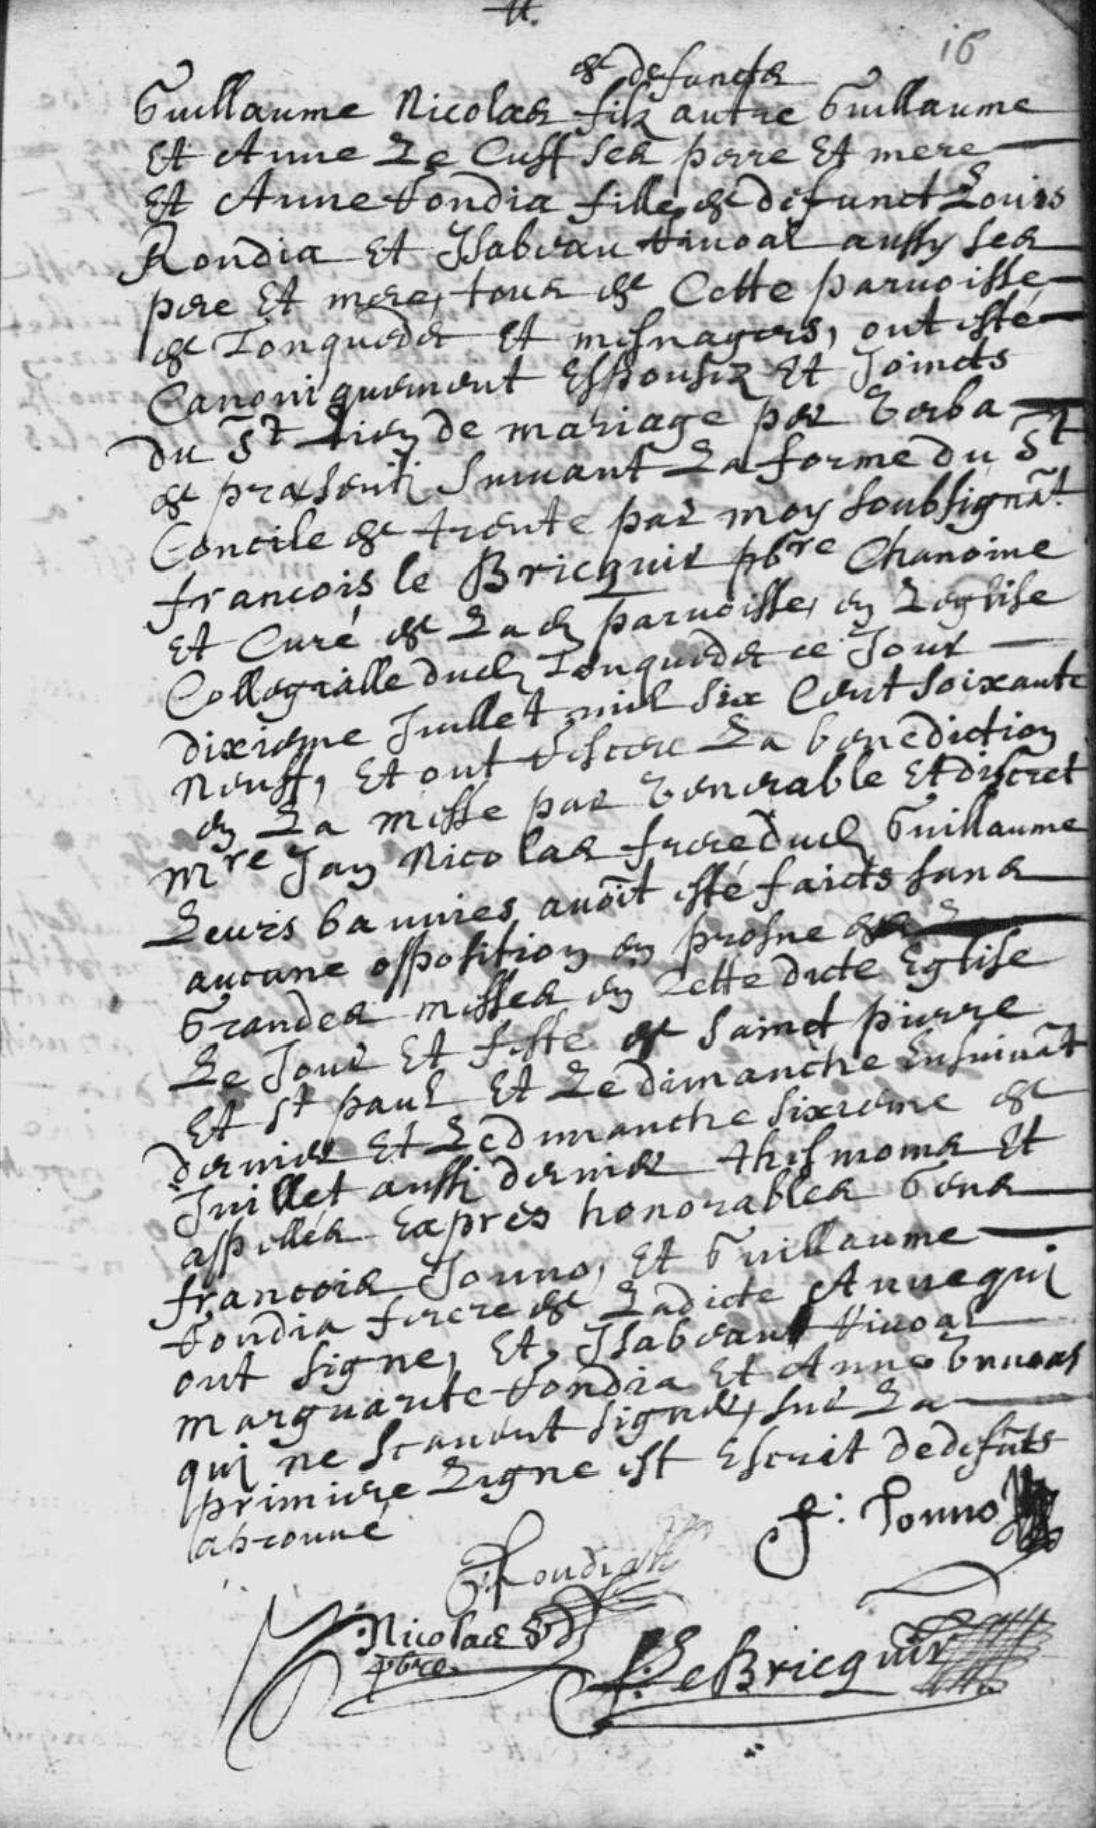 16
de defuncts
Guillaume Nicolas filz autre Guillaume
Et Anne Le Cuff ses pere Et mere
Et Anne Rondia fille de defunct Louis
Rondia Et Jsabeau Riuoal aussy ses
pere Et mere, tous de Cette parroisse
de Tonquedec Et mesnagers, ont esté
Canoniquement Espousez Et Joincts
du St Lien de mariage par Verba
de præsenti Suiuant La forme du St
Concile de trente par moy soubsignāt
francois le Bricquir pbre Chanoine
Et Curé de Lad parroisse, en Leglise
Collegialle dud Tonquedec ce Jour
dixieme Juillet mil six Cent soixante
neuff, Et ont Receu La benediction
en La messe par Venerable Et discret
mre Jan Nicolas frere dud Guillaume
Leurs bannies auoit esté faicts sans
aucune opposition en prosne des
Grandes messes en Cette dicte Eglise
Le Jour Et feste de sainct pierre
Et St paul Et Le dimanche Ensuiuāt
dernier Et Le dimanche sixieme de
Juillet aussi dernier thesmoins Et
appellés Exprès honorables Gens
francois Jouno, Et Guillaume
Rondia frere de Ladicte Anne qui
ont signe, Et, Jsabeau Riuoal
marguarite Rondia Et Anne
qui ne scauent signer, sur La
premiere Ligne est Escrit de defūts
aprouué
f: Jouno
G: Rondia
Nicolas
pbre
f: Le Bricquir